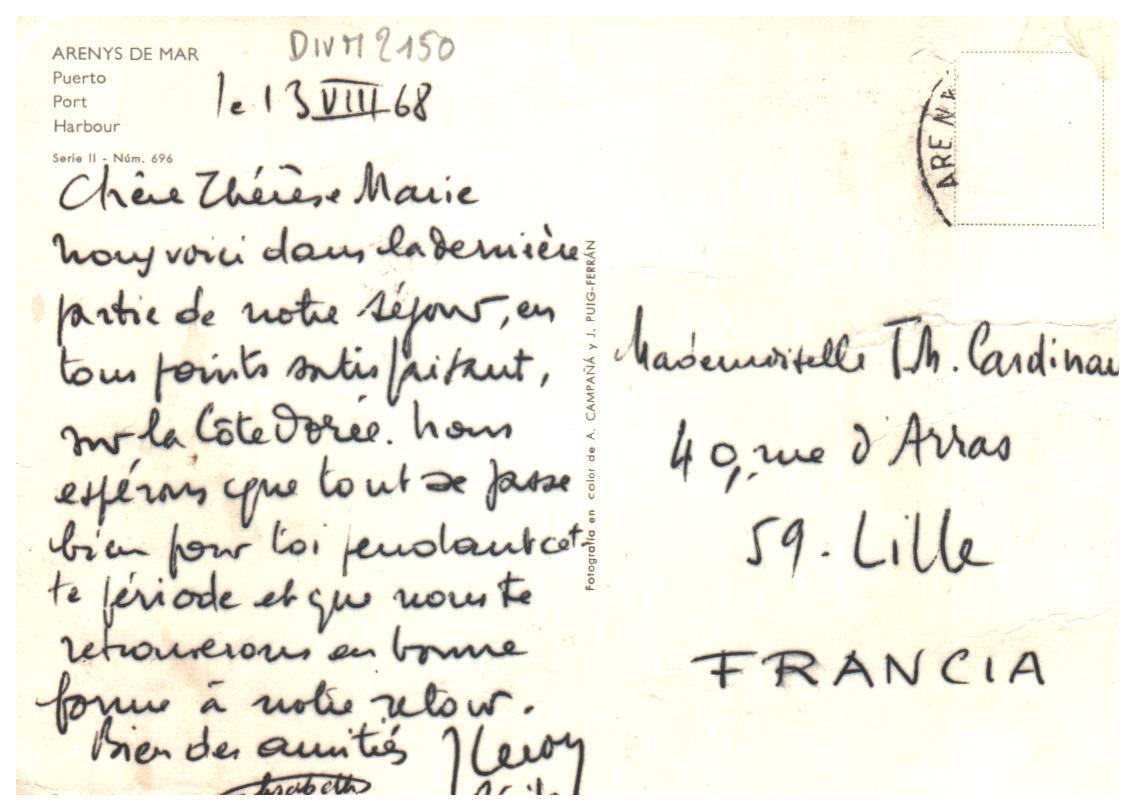 ARENYS DE MAR
Puerto
Port
Harbour
Serie II - Núm. 696
DIVM 2150
le 13 VIII 68
Chère Thérèse Marie
nous voici dans la dernière
partie de notre séjour, en
tous points satisfaisant,
sur la Côte Dorée. Nous
espérons que tout se passe
bien pour toi pendant cet-
te période et que nous te
retrouverons en bonne
forme à notre retour.
Bien des amitiés
JLeroy
Elisabeth
Fotografía en color de A. CAMPAÑÁ y J. PUIG-FERRÁN
AREN
Mademoiselle Th. Cardinau
40, rue d'Arras
59. Lille
FRANCIA